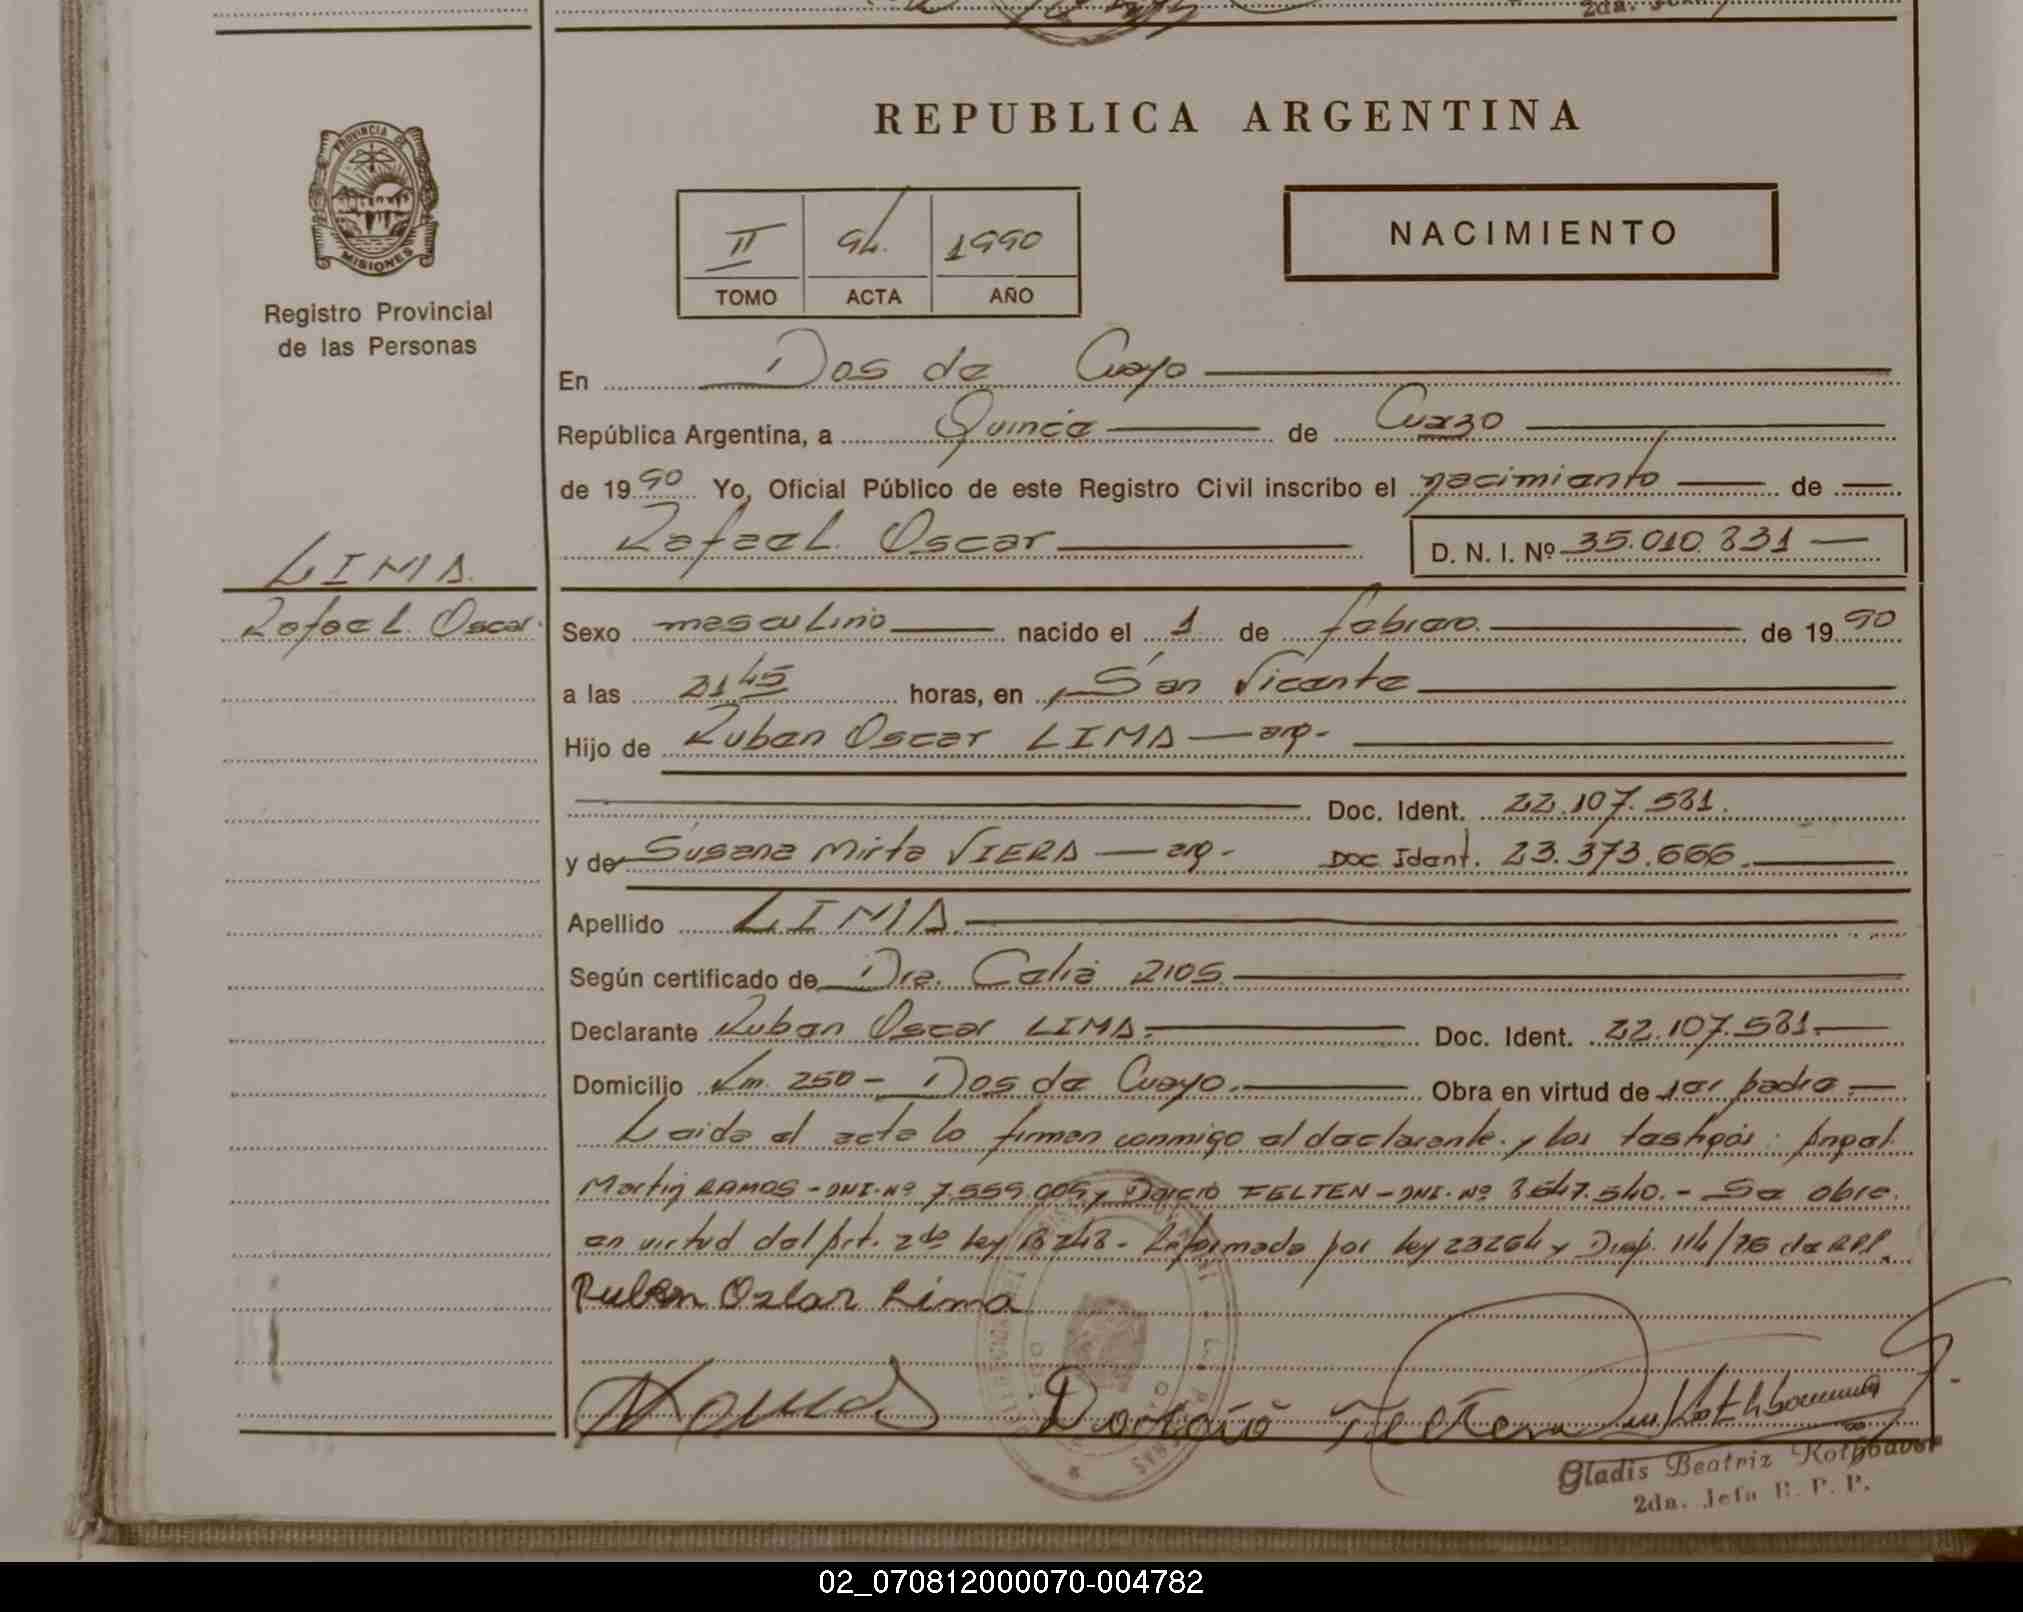 2da. Jefa
REPUBLICA ARGENTINA
PROVINCIA DE
MISIONES
Registro Provincial
de las Personas
II 94. 1990
TOMO ACTA AÑO
NACIMIENTO
En Dos de Mayo
República Argentina, a Quince de Marzo
de 1990 Yo, Oficial Público de este Registro Civil inscribo el nacimiento de
Rafael Oscar D. N. I. Nº 35.010.831
LIMA
Rafael Oscar
Sexo masculino nacido el 1 de febrero de 1990
a las 2145 horas, en San Vicente
Hijo de Ruben Oscar LIMA — arg.
Doc. Ident. 22.107.581.
y de Susana Mirta VIERA — arg. Doc Ident. 23.373.666.
Apellido LIMA
Según certificado de Dra. Celia RIOS
Declarante Ruben Oscar LIMA. Doc. Ident. 22.107.581.
Domicilio Km. 250 - Dos de Mayo. Obra en virtud de ser padre
Leida el acta lo firman conmigo el declarante y los testigos: Angel
Martin RAMOS - DNI. Nº 7.559.009 y Dorcio FELTEN - DNI. Nº 8547.540. - Se obra
en virtud del Art. 2do Ley 18248 - Reformada por Ley 23264 y Disp. 114/76 de RPP.
Ruben Oscar Lima
Gladis Beatriz Rothbauer
2da. Jefa R. P. P.
02_070812000070-004782